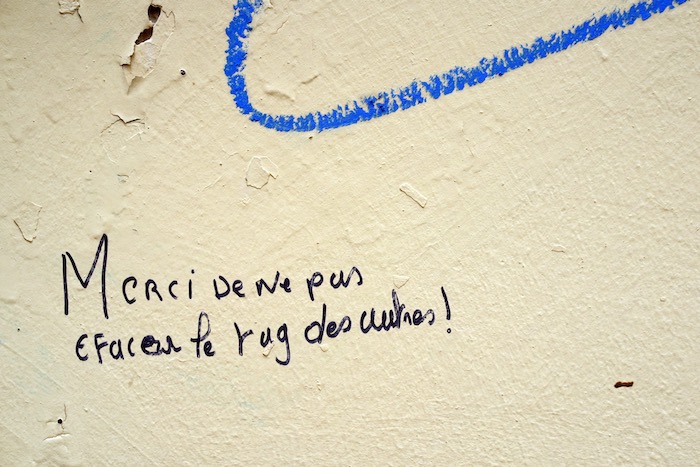 Merci de ne pas
efacer le tag des autres !